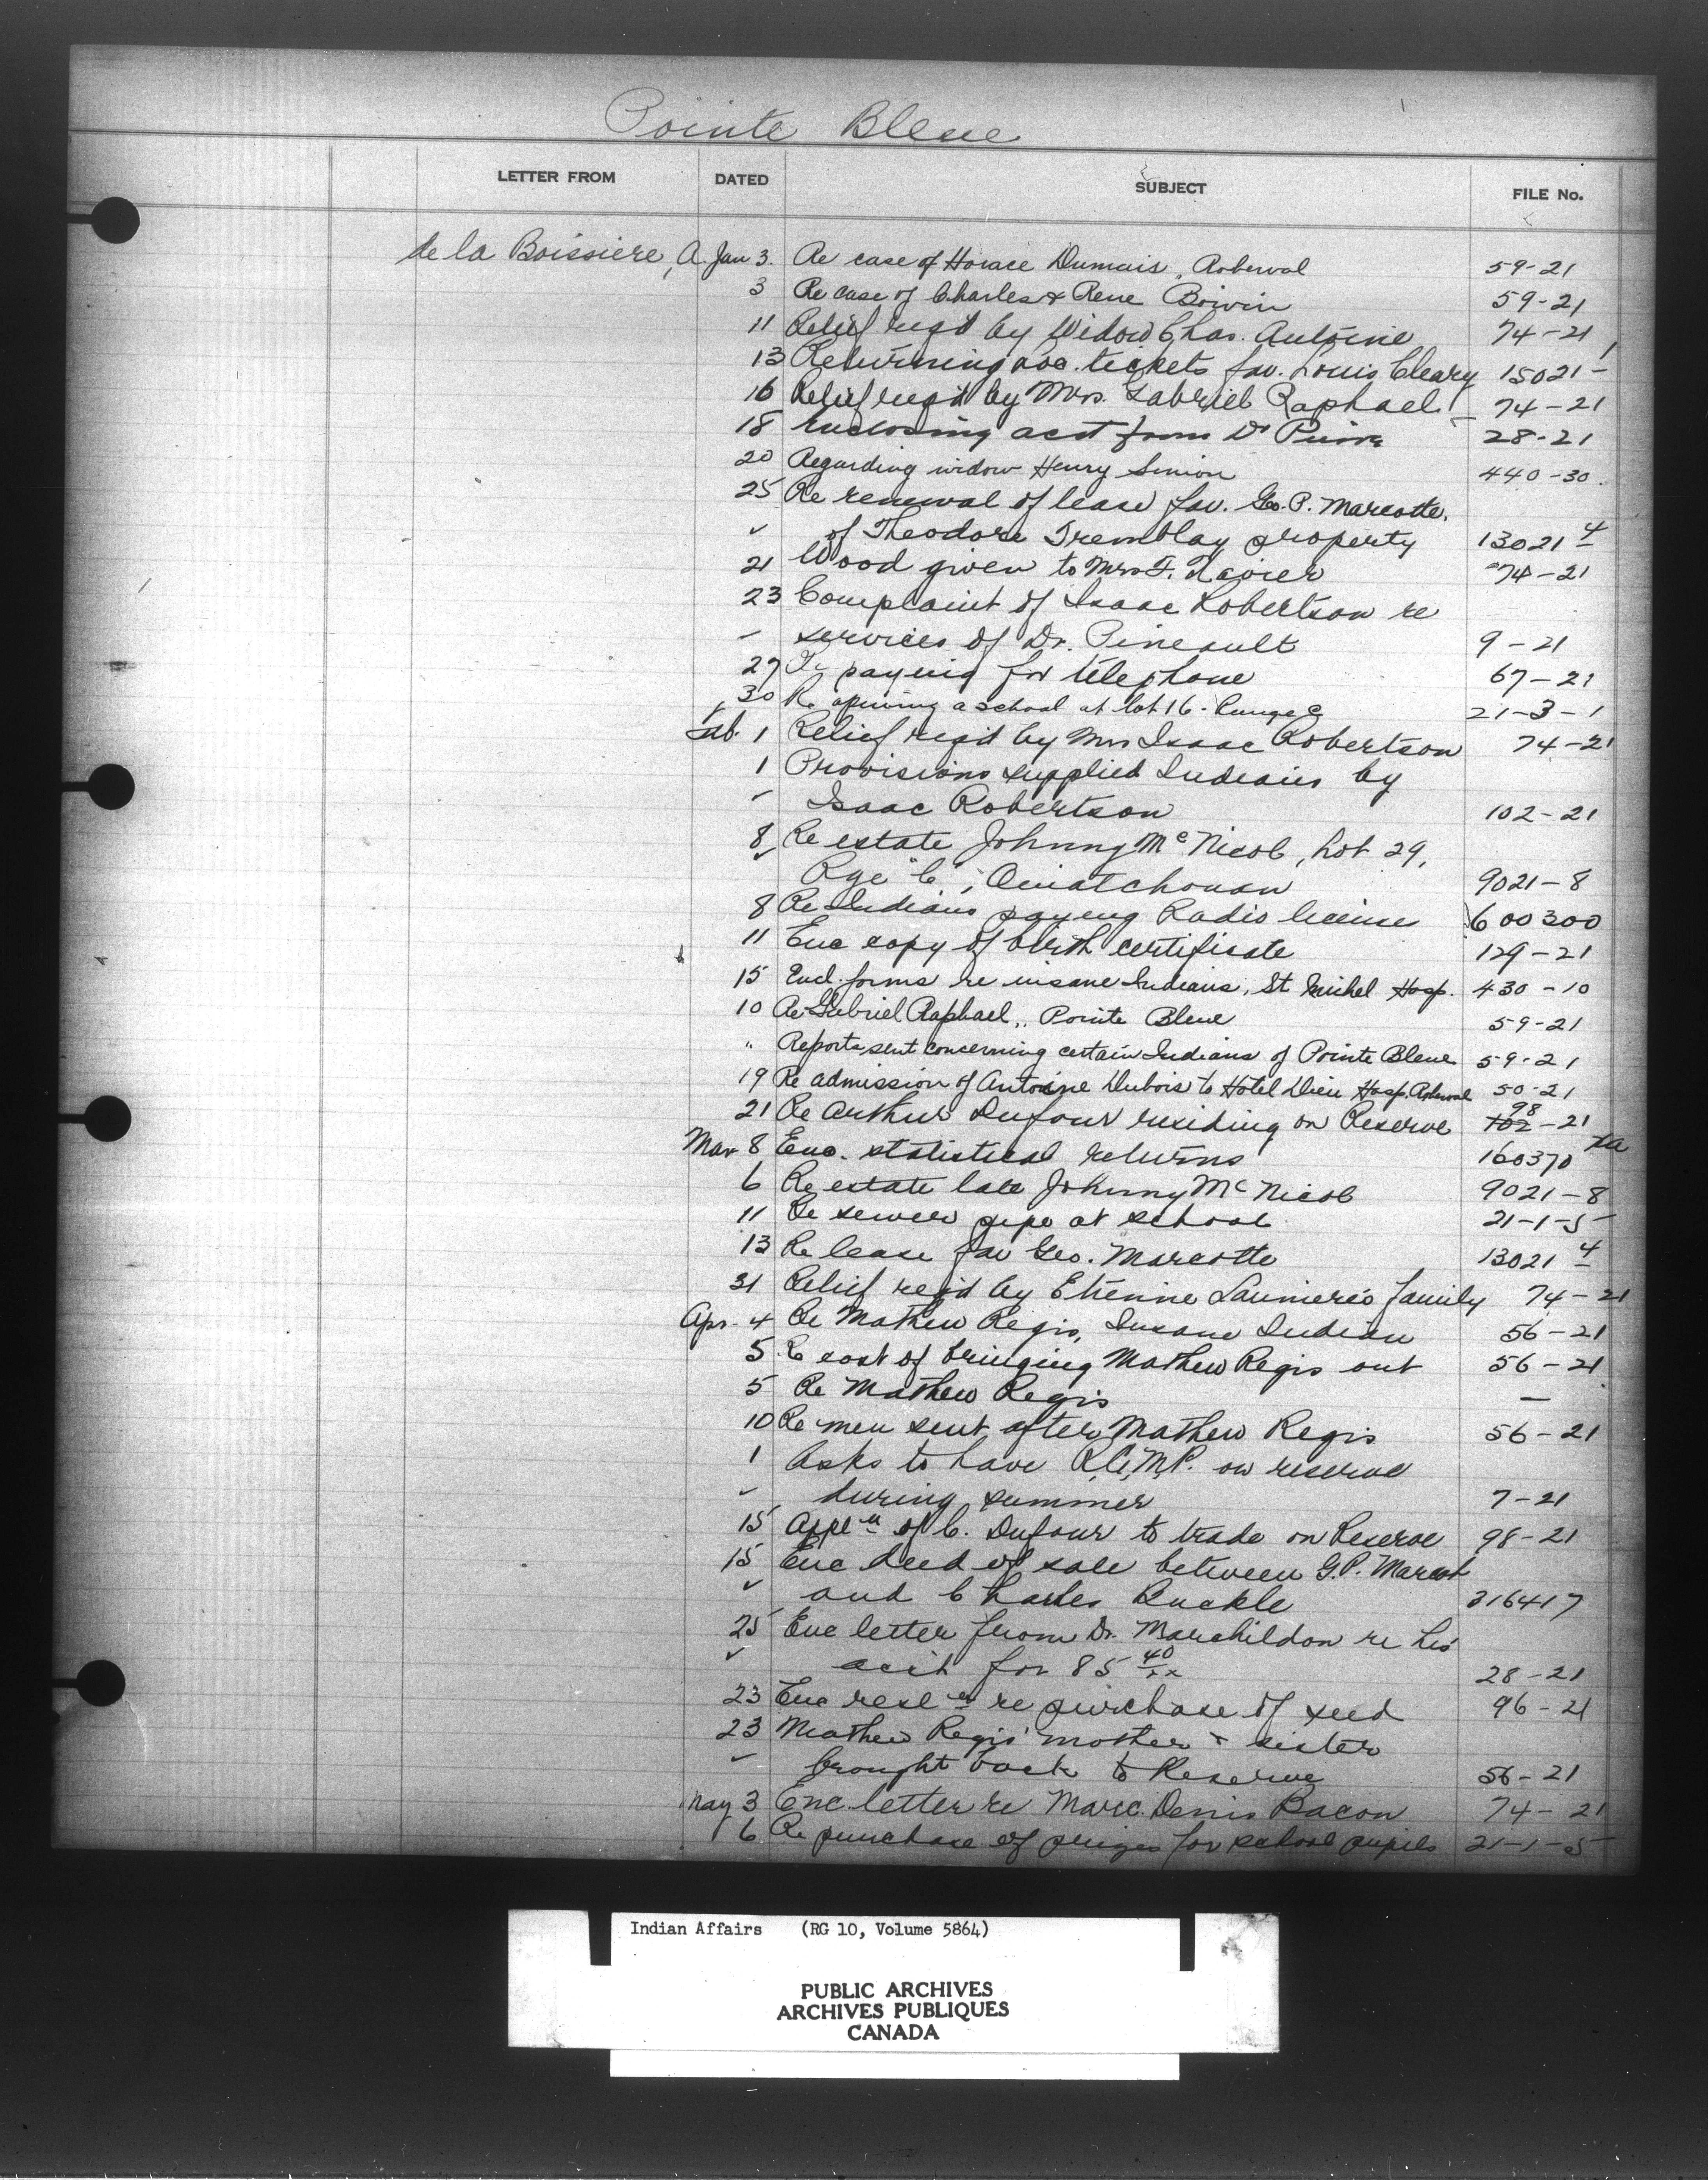 Pointe Bleue
LETTER FROM DATED SUBJECT FILE No.
de la Boissiere, A. Jan 3. Re case of Horace Dumais, Roberval 59-21
3 Re case of Charles & Rene Boivin 59-21
11 Relief reqd by Widow Chas. Antoine 74-21
13 Returning loc. tickets fav. Louis Cleary 15021-1
16 Relief req'd by Mrs. Gabriel Raphael 74-21
18 Enclosing acct from Dr 28-21
20 Regarding widow Henry Simion 440-30.
25 Re renewal of lease fav. Geo. P. Marcotte.
✓ of Theodore Tremblay property 13021 4
21 Wood given to Mrs F. Xavier 74-21
23 Complaint of Isaac Robertson re
✓ services of Dr. Pineault 9-21
27 paying for telephone 67-21
30 Re opening a school at lot 16-Range C 21-3-1
Feb. 1 Relief req'd by Mrs Isaac Robertson 74-21
1 Provisions supplied Indians by
✓ Isaac Robertson 102-21
8 Re estate Johnny McNicol, Lot 29,
✓ Rge "C", Ouiatchouan 9021-8
8 Re Indians paying Radio license 600300
11 Enc copy of birth certificate 129-21
15 Encl. forms re insane Indians, St Michel Hosp. 430-10
10 Re Gabriel Raphael, Pointe Bleue 59-21
" Reports sent concerning certain Indians of Pointe Bleue 59-21
19 Re admission of Antoine Dubois to Hotel Dieu Hosp. Roberval 50-21
21 Re Arthur Dufour residing on Reserve 98
102-21
Mar 8 Enc. statistical returns 160370
6 Re estate late Johnny McNicol 9021-8
11 Re sewer pipe at school 21-1-5
13 Re lease fav Geo. Marcotte 13021 4
31 Relief req'd by Etienne Launiere's family 74-21
Apr. 4 Re Mathew Regis, Insane Indian 56-21
5 Re cost of bringing Mathew Regis out 56-21
5 Re Mathew Regis —
10 Re men sent after Mathew Regis 56-21
1 Asks to have R.C.M.P. on reserve
✓ during summer 7-21
15 Appln of C. Dufour to trade on Reserve 98-21
15 Enc deed of sale between G.P. Marcot
✓ and Charles Buckle 316417
25 Enc letter from Dr. Marchildon re his
✓ acct for 85 40/xx 28-21
23 Enc resl re purchase of seed 96-21
23 Mathew Regis' mother & sister
✓ brought back to Reserve 56-21
May 3 Enc letter re Marc. Denis Bacon 74-21
6 Re purchase of prizes for school pupils 21-1-5
Indian Affairs (RG 10, Volume 5864)
PUBLIC ARCHIVES
ARCHIVES PUBLIQUES
CANADA